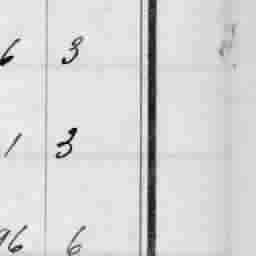 6 3
1 3
96 6